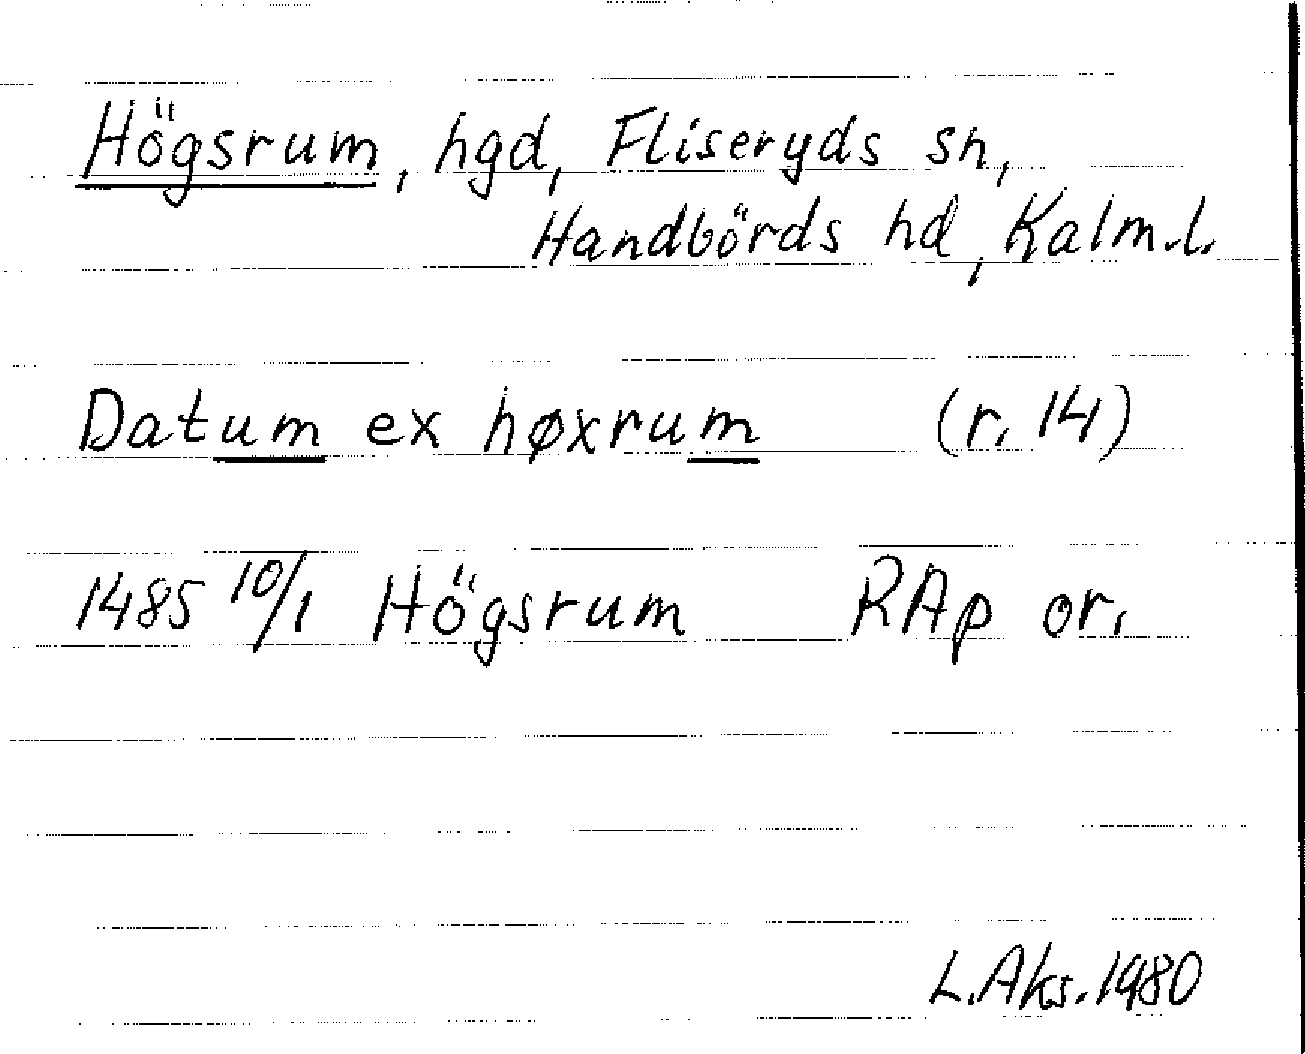 Högsrum, hgd, Fliseryds sn,
Handbörds hd, Kalm.l.
Datum ex høxrum (r. 14)
1485 10/1 Högsrum RAp or.
L.Aks.1980